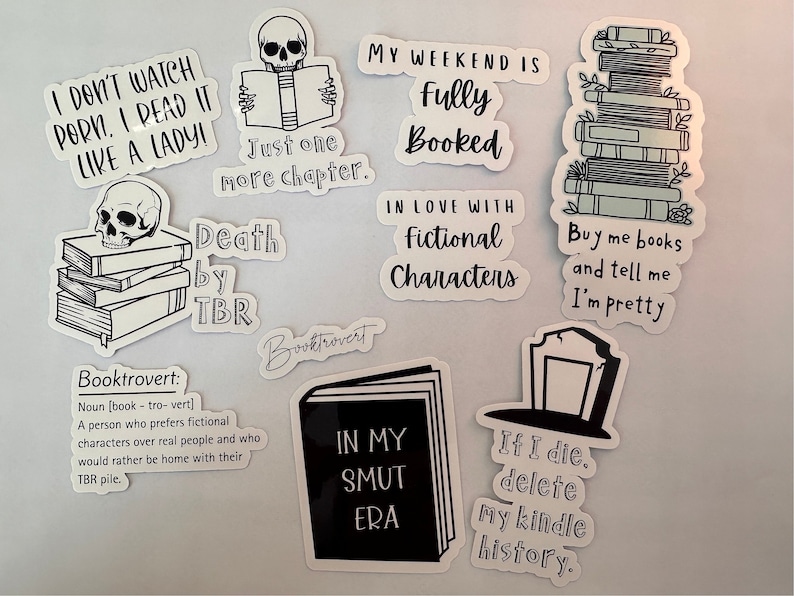 I DON'T WATCH
PORN, I READ IT
LIKE A LADY!
Just one
more chapter.
MY WEEKEND IS
Fully
Booked
Buy me books
and tell me
I'm pretty
Death
by
TBR
IN LOVE WITH
Fictional
Characters
Booktrovert
Booktrovert:
Noun [book - tro- vert]
A person who prefers fictional
characters over real people and who
would rather be home with their
TBR pile.
IN MY
SMUT
ERA
If I die,
delete
my kindle
history.